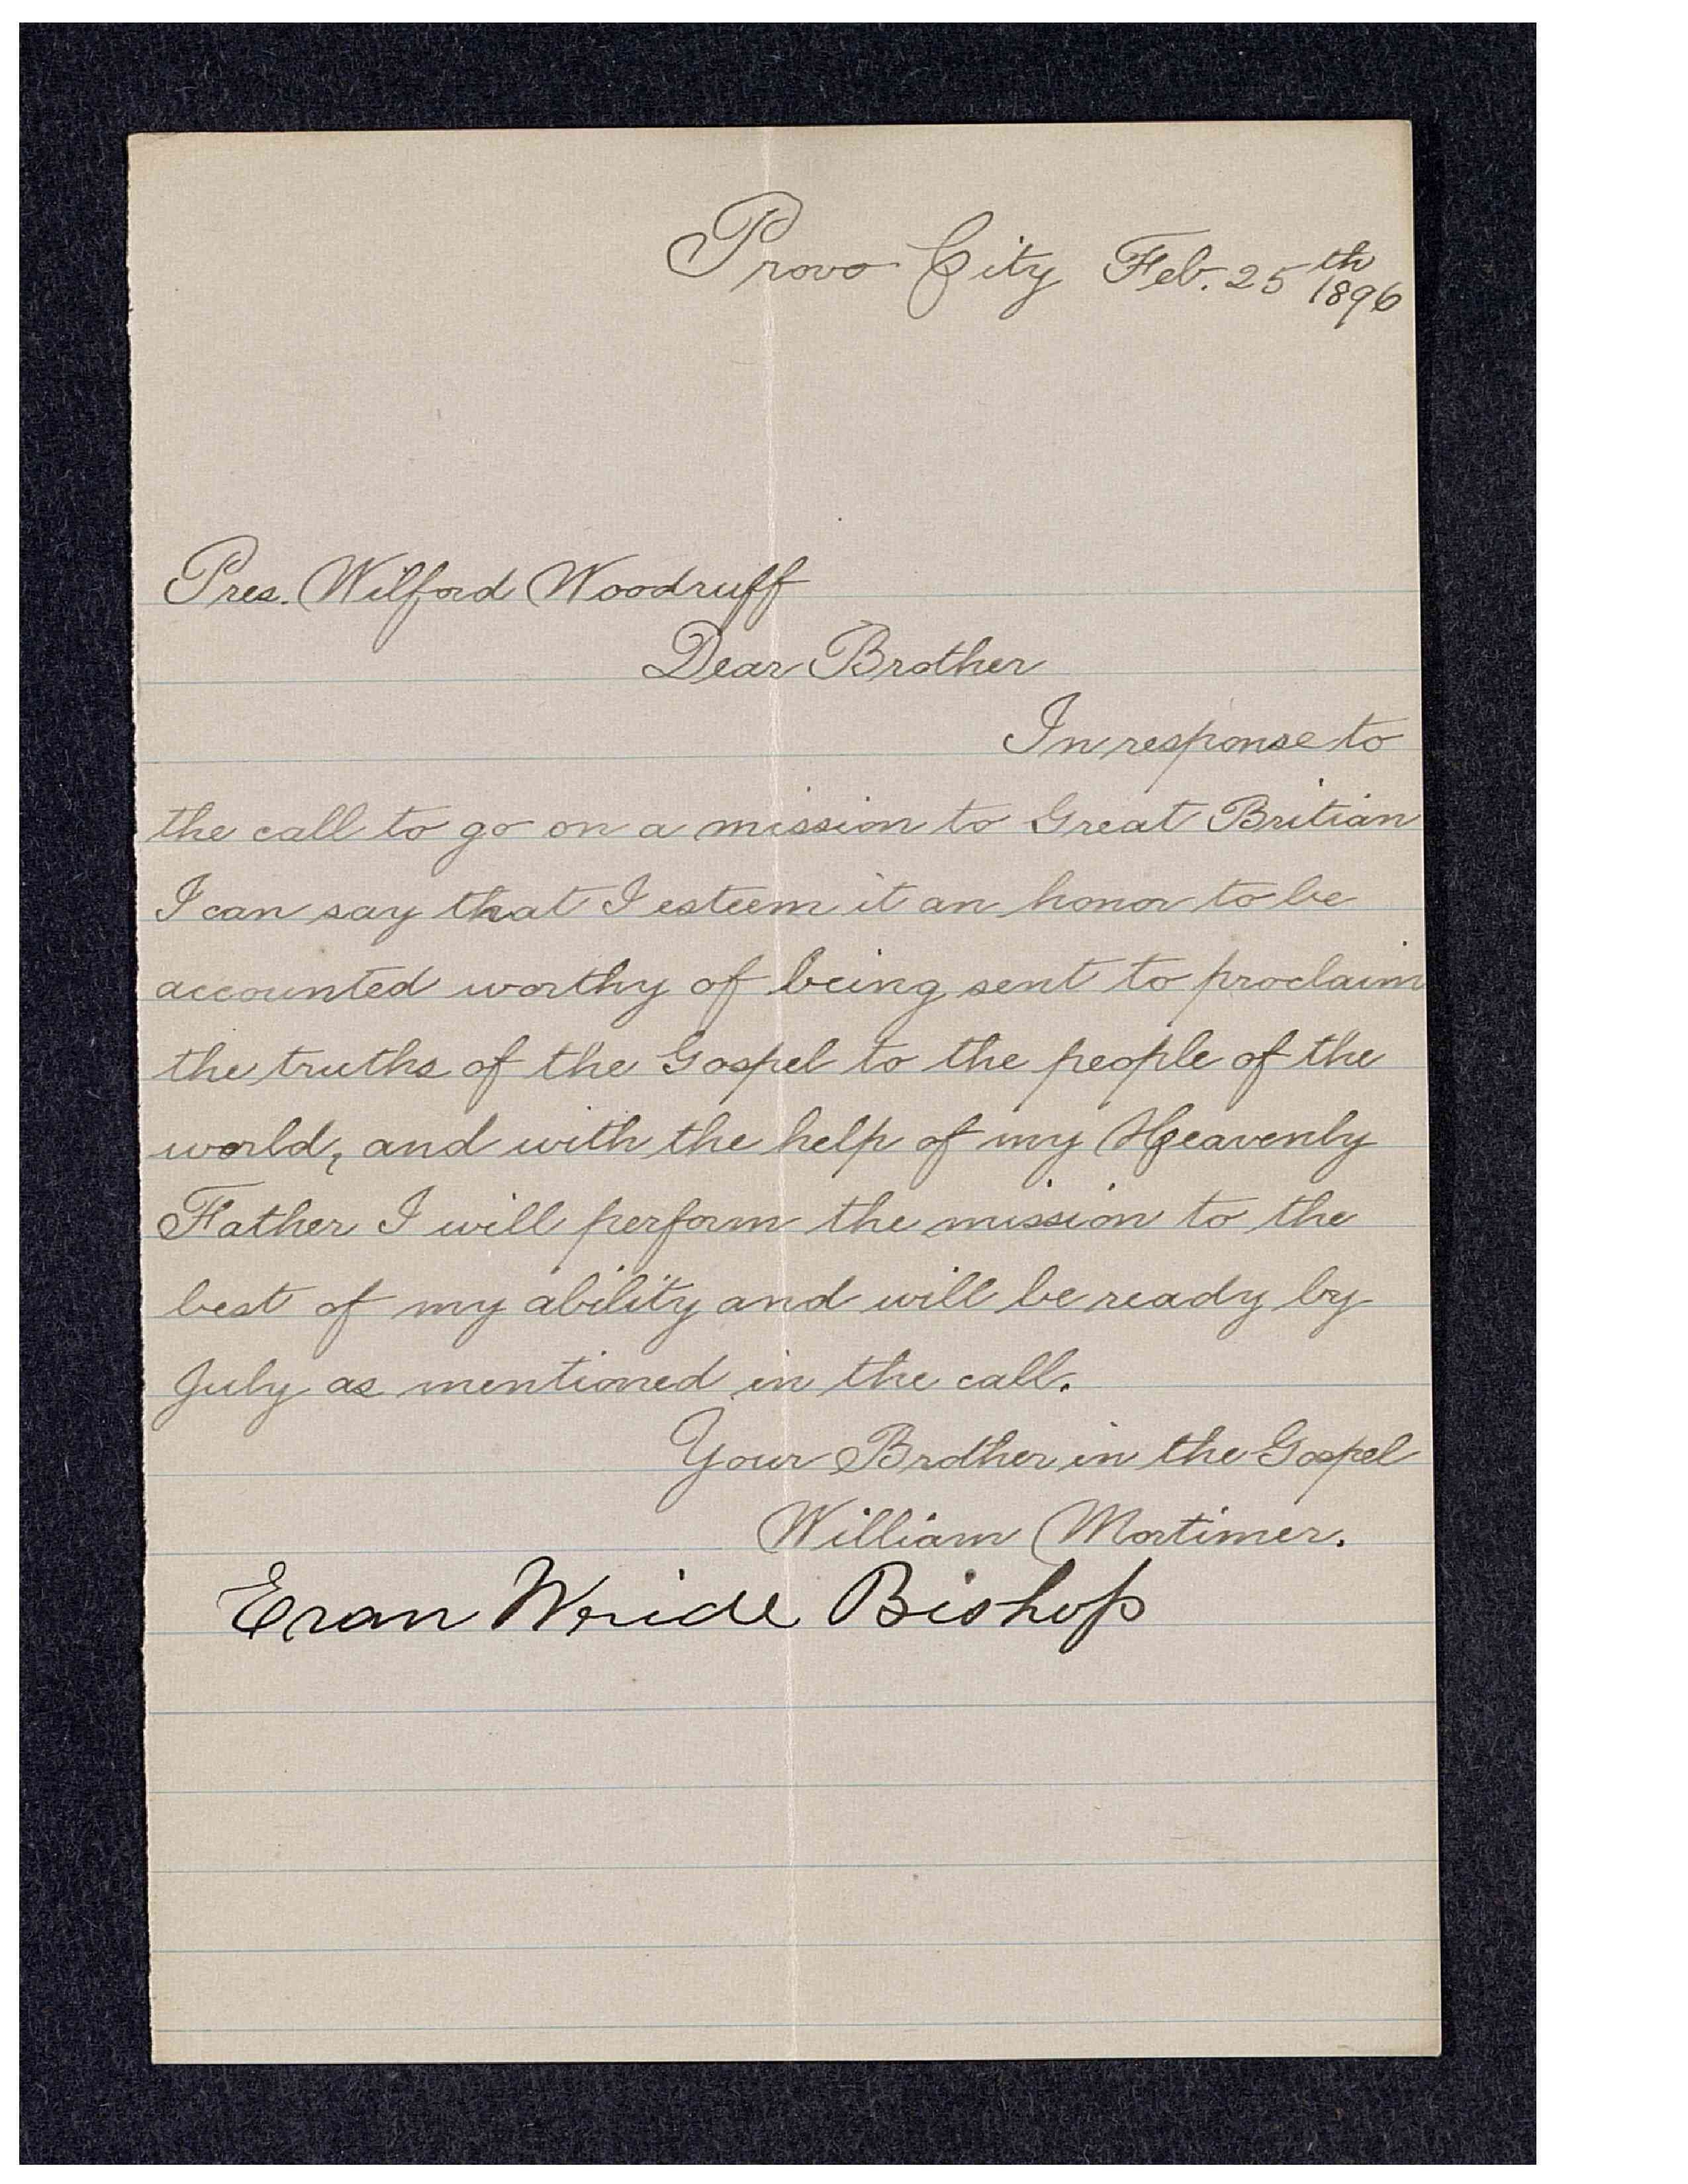 Provo City Feb. 25th 1896
Pres. Wilford Woodruff
Dear Brother
In response to
the call to go on a mission to Great Britian
I can say that I esteem it an honor to be
accounted worthy of being sent to proclaim
the truths of the Gospel to the people of the
world, and with the help of my Heavenly
Father I will perform the mission to the
best of my ability and will be ready by
July as mentioned in the call.
Your Brother in the Gospel
William Mortimer.
Evan Wride Bishop